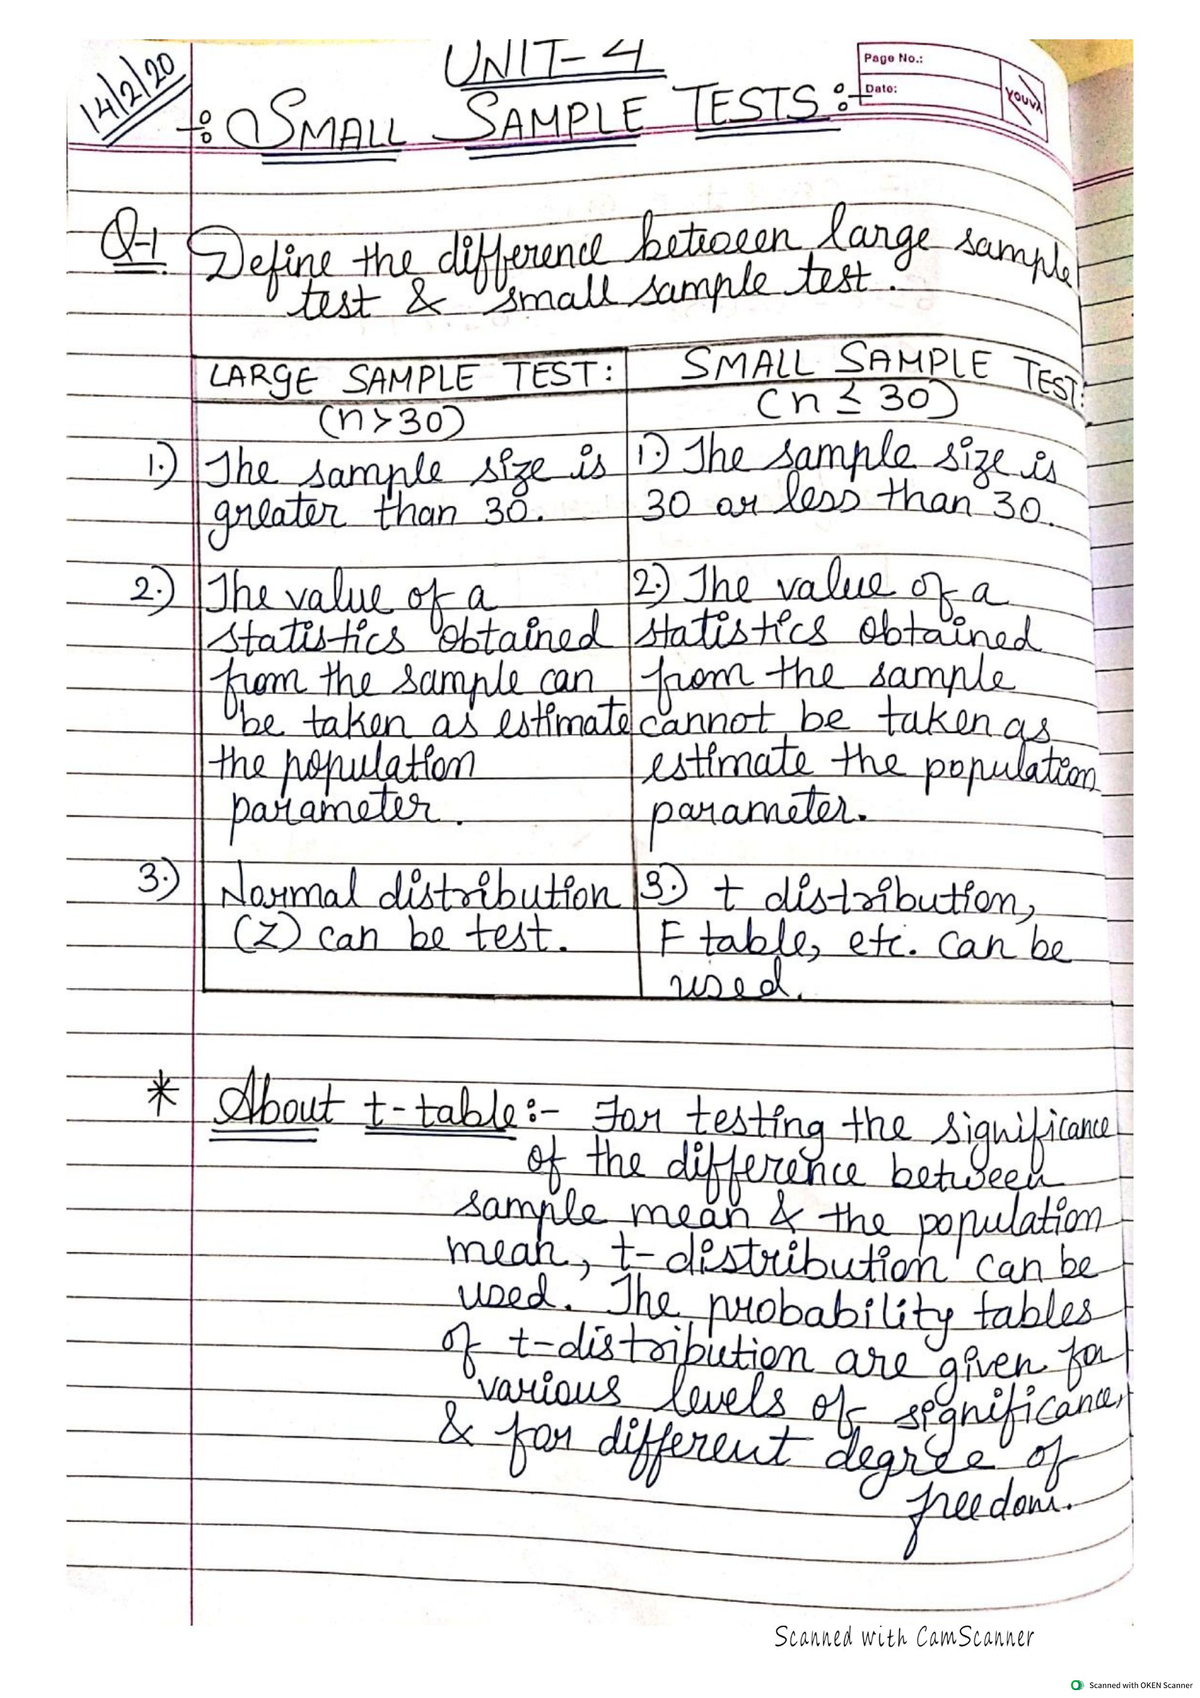 14/2/20
UNIT-4
Page No.:
Date:
YOUVA
-:SMALL SAMPLE TESTS:-
Q-1 Define the difference between large sample
test & small sample test.
LARGE SAMPLE TEST:
(n>30)
1.) The sample size is
greater than 30.
2.) The value of a
statistics obtained
from the sample can
be taken as estimate
the population
parameter.
3.) Normal distribution
(Z) can be test.
SMALL SAMPLE TEST:
(n ≤ 30)
1.) The sample size is
30 or less than 30.
2.) The value of a
statistics obtained
from the sample
cannot be taken as
estimate the population
parameter.
3.) t distribution,
F table, etc. can be
used.
* About t-table:- For testing the significance
of the difference between
sample mean & the population
mean, t-distribution can be
used. The probability tables
of t-distribution are given for
various levels of significance,
& for different degree of
freedom.
Scanned with CamScanner
Scanned with OKEN Scanner